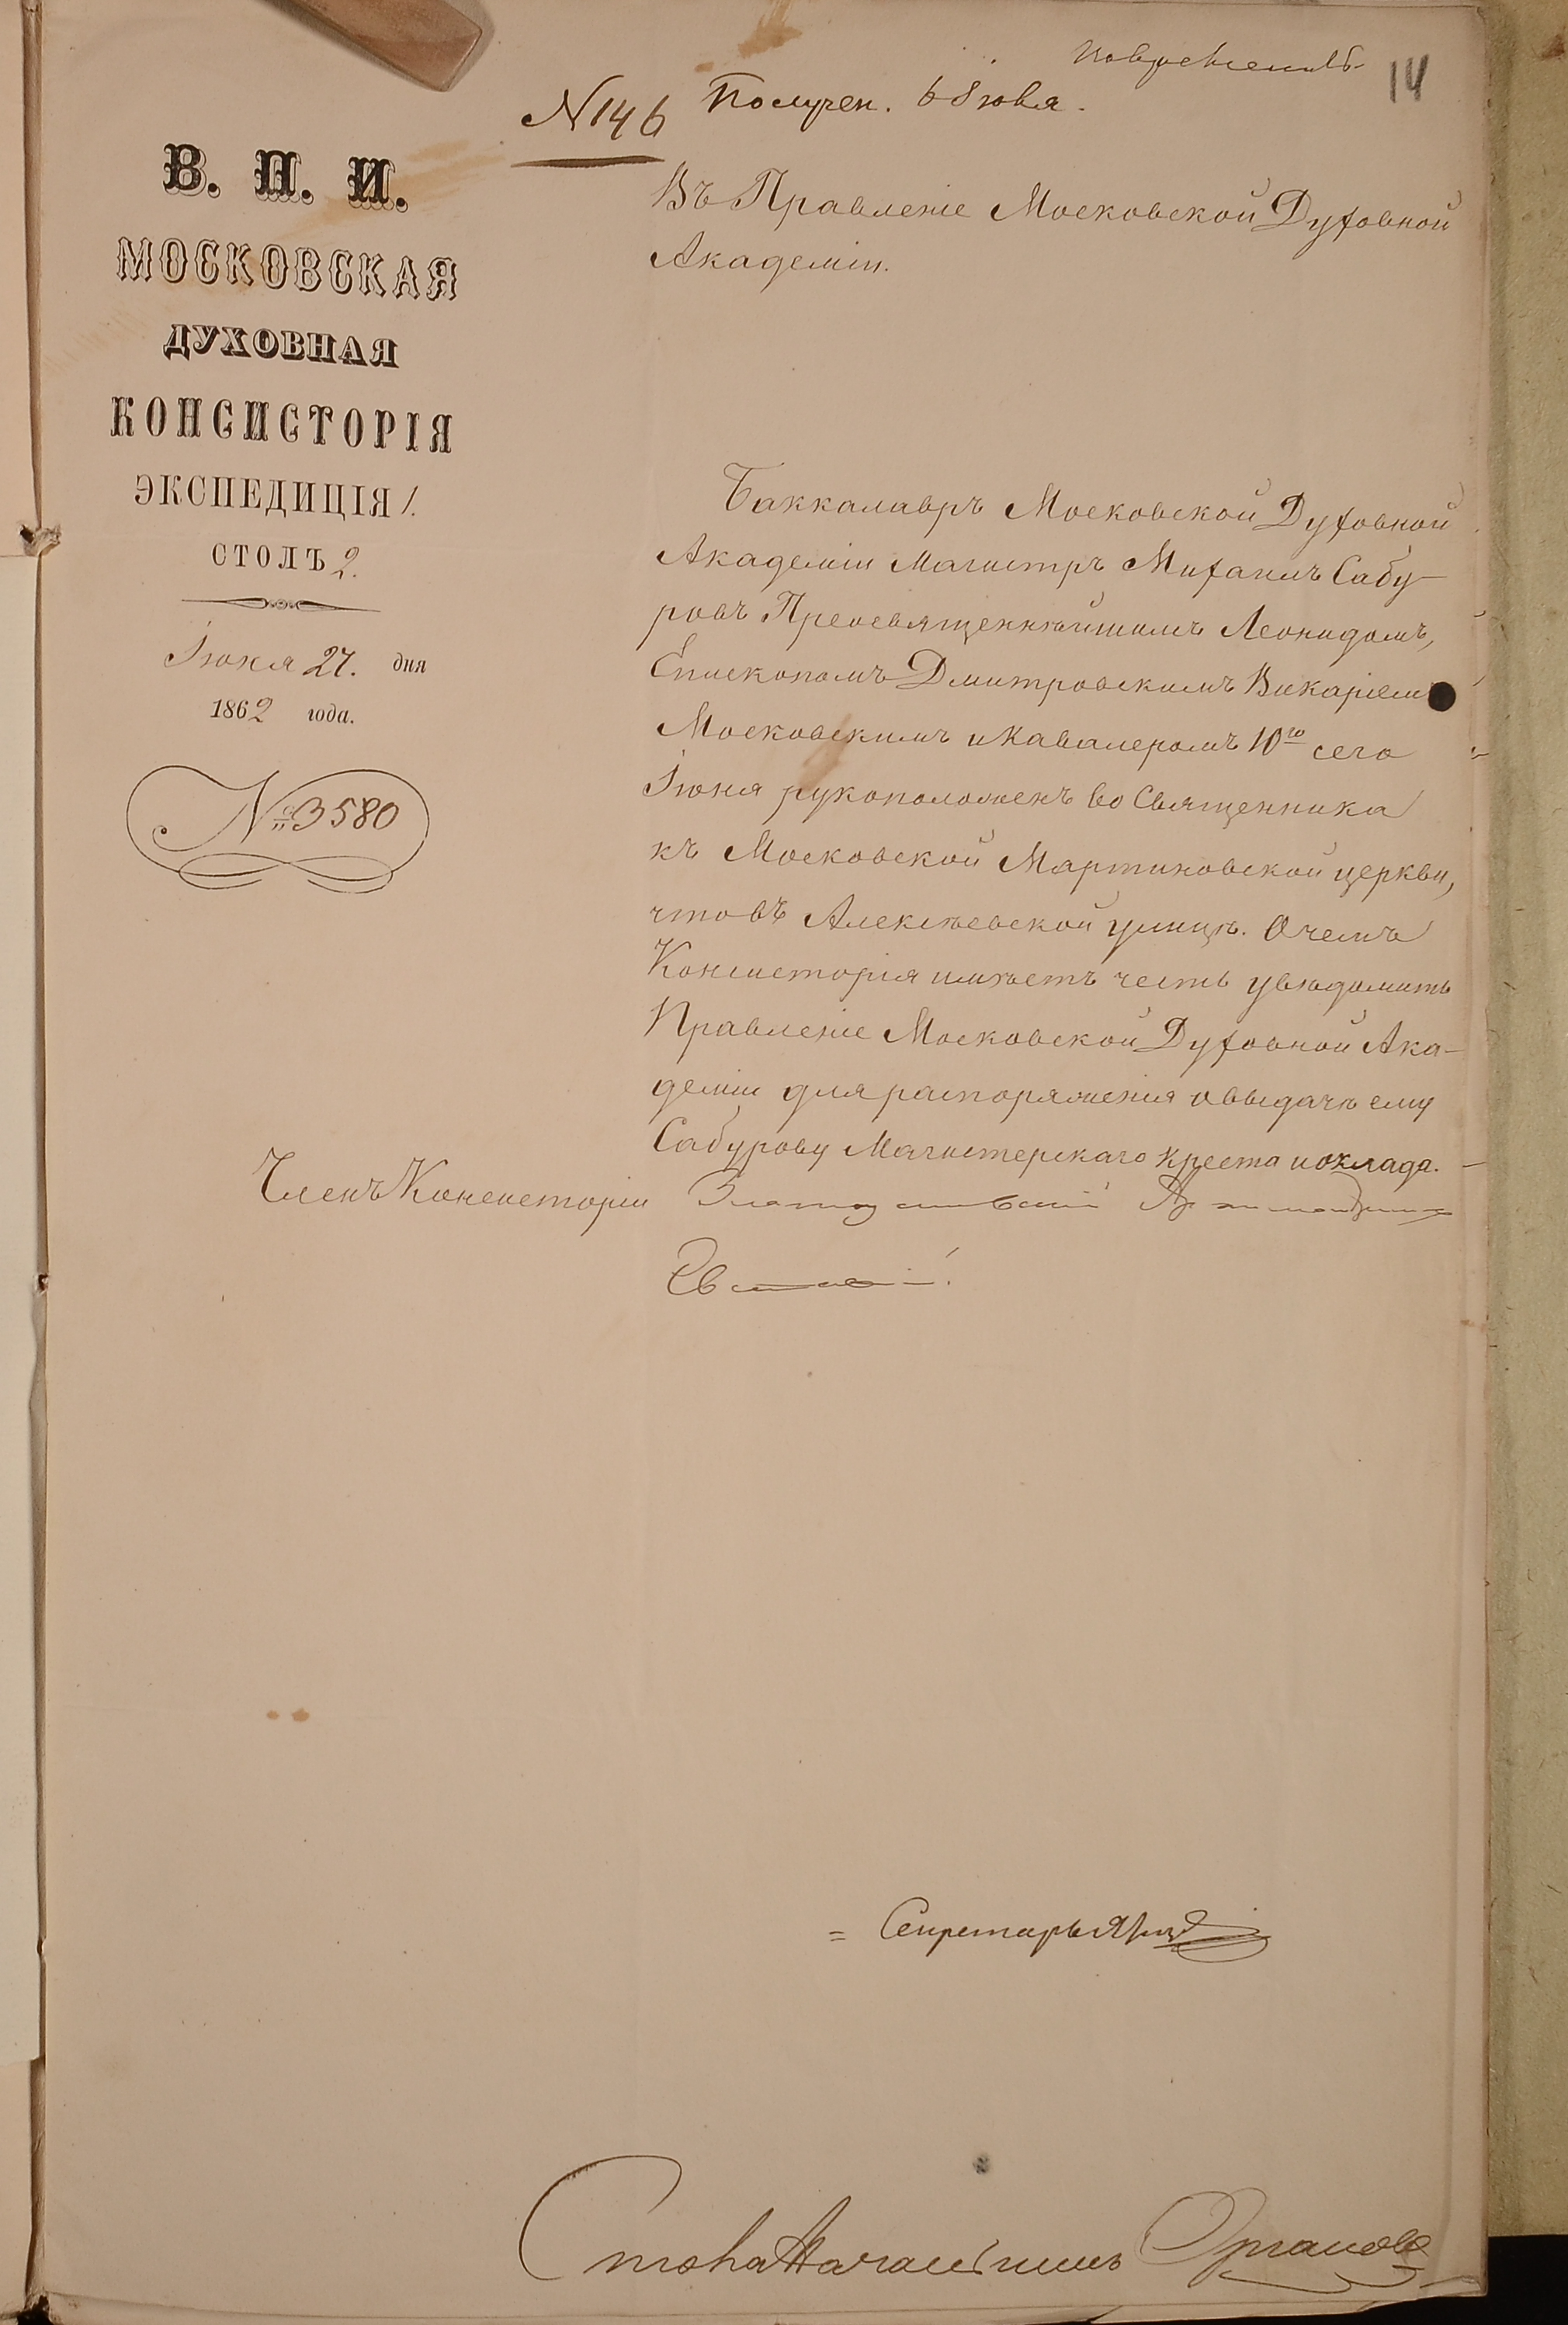 14
№ 146 Получен. 6 Іюля.
В. П. И.
МОСКОВСКАЯ
ДУХОВНАЯ
КОНСИСТОРІЯ
ЭКСПЕДИЦІЯ 1.
СТОЛЪ 2.
Іюня 27. дня
1862 года.
№ 3580
Въ Правленіе Московской Духовной
Академіи.
Баккалавръ Московской Духовной
Академіи Магистръ Михаилъ Сабу-
ровъ Преосвященнѣйшимъ Леонидомъ,
Епископомъ Дмитровскимъ Викаріем
Московскимъ и Кавалеромъ 10го сего
Іюня рукоположенъ во Священника
къ Московской Мартиновской церкви,
что въ Алексѣевской улицѣ. О чемъ
Консисторія имѣетъ честь увѣдомить
Правленіе Московской Духовной Ака-
деміи для распоряженія о выдачѣ ему
Сабурову Магистерскаго креста и оклада.
Членъ Консисторіи Златоустовскій Архимандритъ
Секретарь
Столоначальникъ